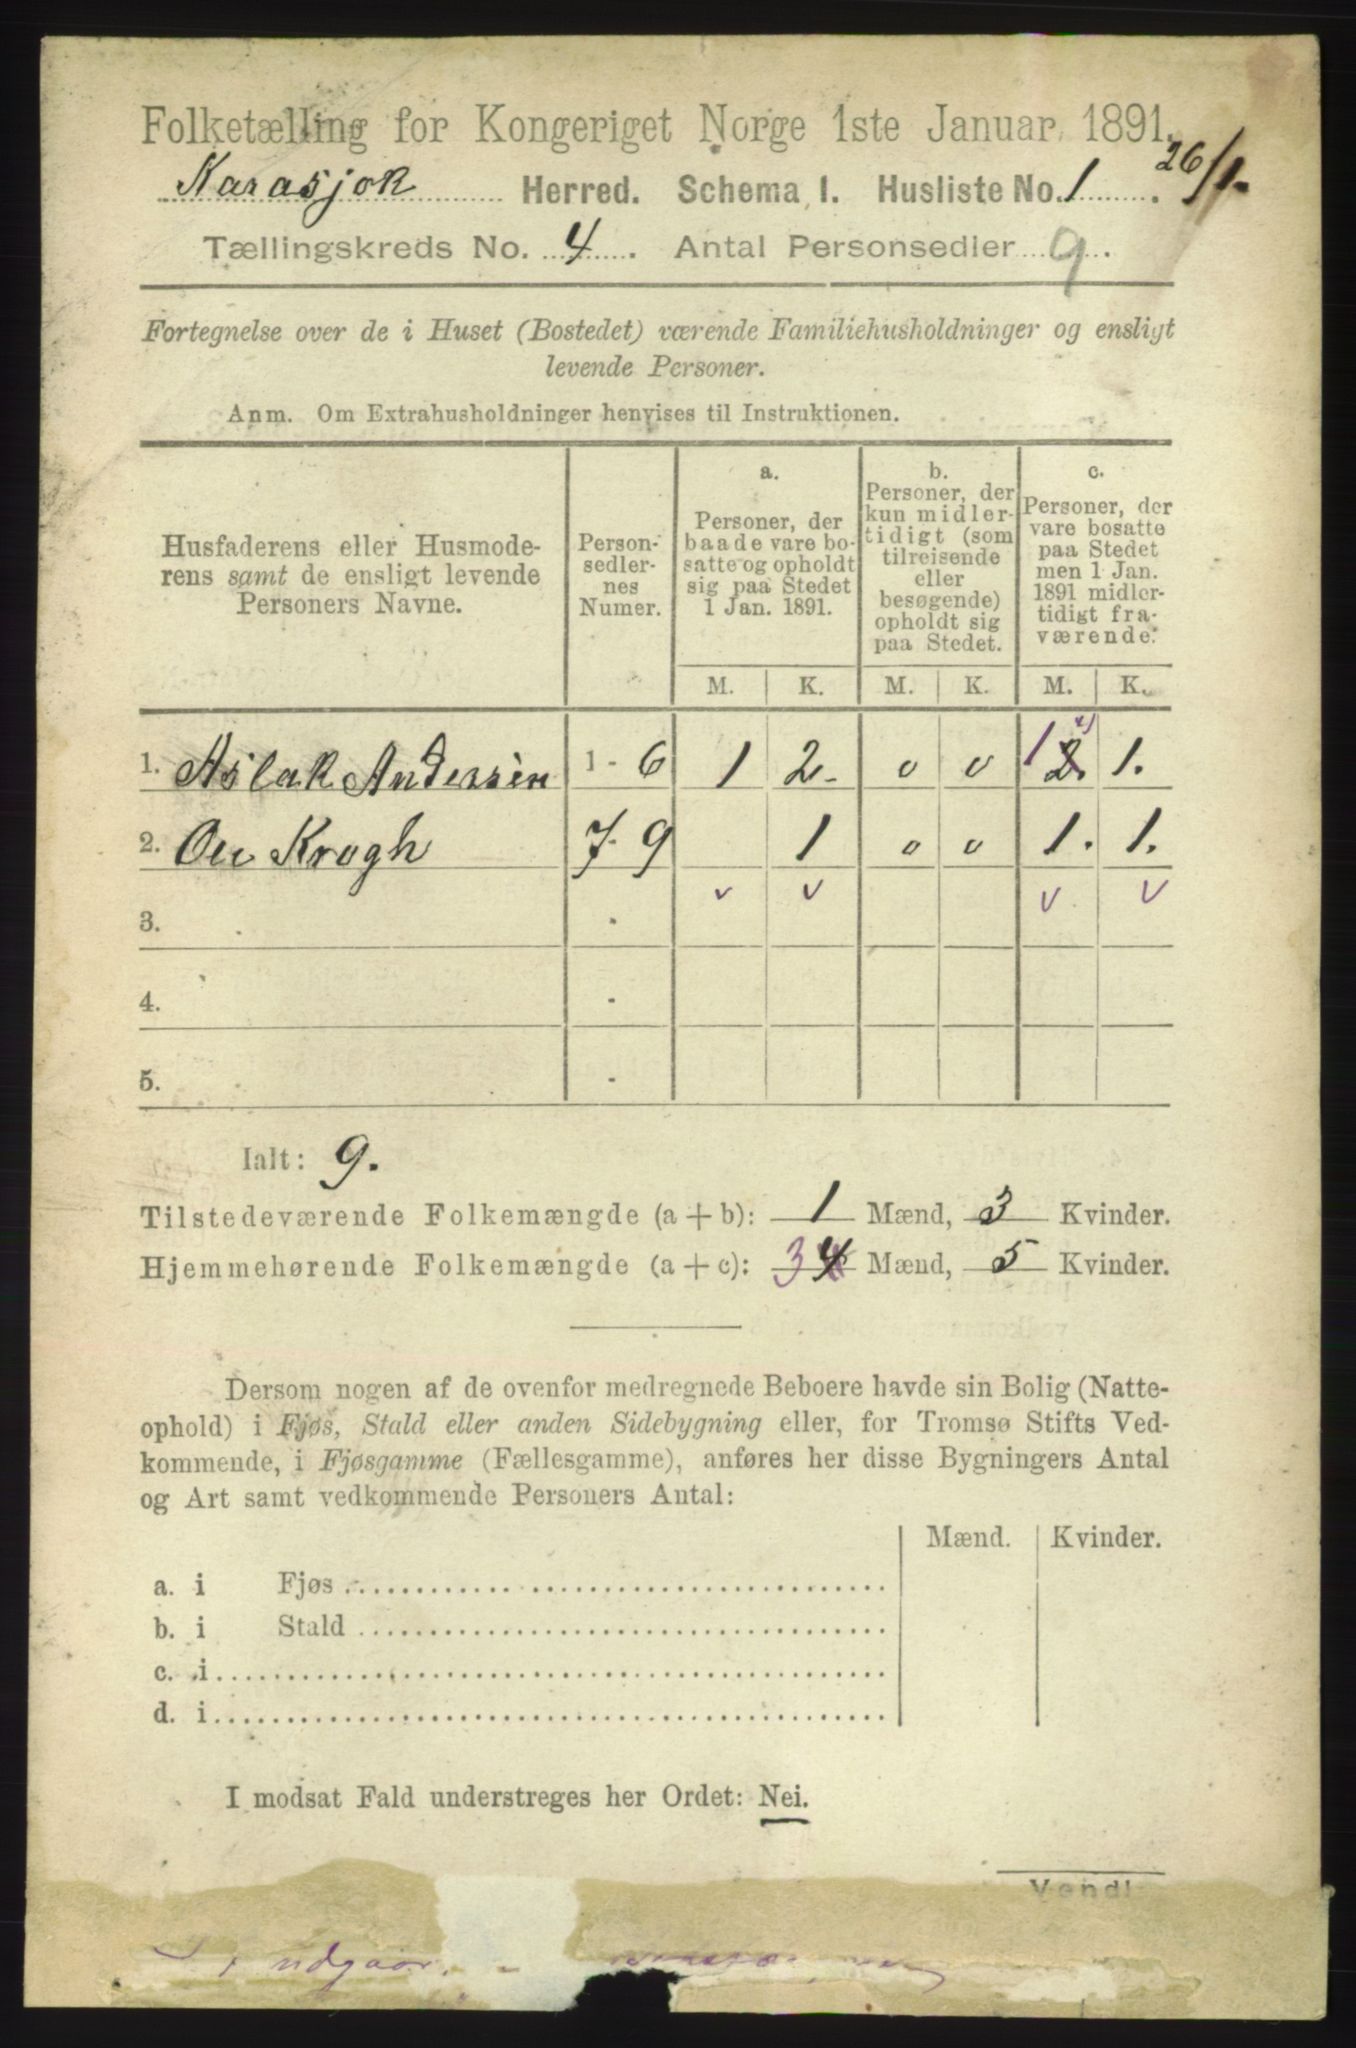 Folketælling for Kongeriget Norge 1ste Januar 1891.
Karasjok Herred. Schema 1. Husliste No. 1. 26/1.
Tællingskreds No. 4. Antal Personsedler 9.
Fortegnelse over de i Huset (Bostedet) værende Familiehusholdninger og ensligt
levende Personer.
Anm. Om Extrahusholdninger henvises til Instruktionen.
Husfaderens eller Husmode-
rens samt de ensligt levende
Personers Navne.
Person-
sedler-
nes
Numer.
a.
Personer, der
baade vare bo-
satte og opholdt
sig paa Stedet
1 Jan. 1891.
b.
Personer, der
kun midler-
tidigt (som
tilreisende
eller
besøgende)
opholdt sig
paa Stedet.
c.
Personer, der
vare bosatte
paa Stedet
men 1 Jan.
1891 midler-
tidigt fra-
værende.
M. K. M. K. M. K.
1. Aslak Andersen 1 - 6 1 2 0 0 1 2. 1.
2. Ou Krogh 7 - 9 1 0 0 1. 1.
v v v v
3. -
4. -
5. -
Ialt: 9.
Tilstedeværende Folkemængde (a + b): 1 Mænd, 3 Kvinder.
Hjemmehørende Folkemængde (a + c): 3 4 Mænd, 5 Kvinder.
Dersom nogen af de ovenfor medregnede Beboere havde sin Bolig (Natte-
ophold) i Fjøs, Stald eller anden Sidebygning eller, for Tromsø Stifts Ved-
kommende, i Fjøsgamme (Fællesgamme), anføres her disse Bygningers Antal
og Art samt vedkommende Personers Antal:
Mænd. Kvinder.
a. i Fjøs
b. i Stald
c. i
d. i
I modsat Fald understreges her Ordet: Nei.
Vend!
udgaar